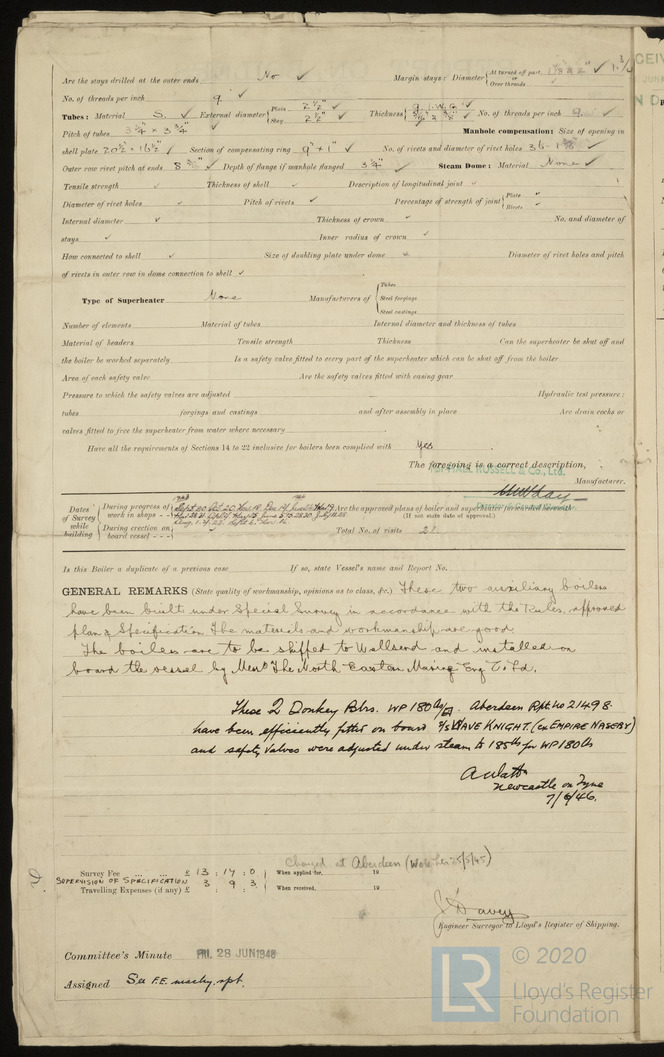 Are the stays drilled at the outer ends No ✓ Margin stays: Diameter { At turned off part, or Over threads
No. of threads per inch 9 ✓
Tubes: Material S. ✓ External diameter { Plain 2 1/2" ✓ Stay 2 1/2" ✓ Thickness { 9 I.W.G. ✓ No. of threads per inch 9.
Pitch of tubes 3 3/4 × 3 3/4 ✓ Manhole compensation: Size of opening in
shell plate 20 1/2 × 16 1/2 ✓ Section of compensating ring 9" × 1" ✓ No. of rivets and diameter of rivet holes 36 - 1 3/16 ✓
Outer row rivet pitch at ends 8 ✓ Depth of flange if manhole flanged 3 3/4 ✓ Steam Dome: Material None ✓
Tensile strength ✓ Thickness of shell ✓ Description of longitudinal joint ✓
Diameter of rivet holes ✓ Pitch of rivets ✓ Percentage of strength of joint { Plate ✓ Rivets ✓
Internal diameter ✓ Thickness of crown ✓ No. and diameter of
stays ✓ Inner radius of crown ✓
How connected to shell ✓ Size of doubling plate under dome Diameter of rivet holes and pitch
of rivets in outer row in dome connection to shell ✓
Type of Superheater None Manufacturers of { Tubes Steel forgings Steel castings
Number of elements Material of tubes Internal diameter and thickness of tubes
Material of headers Tensile strength Thickness Can the superheater be shut off and
the boiler be worked separately Is a safety valve fitted to every part of the superheater which can be shut off from the boiler
Area of each safety valve Are the safety valves fitted with easing gear
Pressure to which the safety valves are adjusted Hydraulic test pressure:
tubes forgings and castings and after assembly in place Are drain cocks or
valves fitted to free the superheater from water where necessary
Have all the requirements of Sections 14 to 22 inclusive for boilers been complied with Yes
The foregoing is a correct description,
RUSSELL & Co., Ltd.
Manufacturer.
Dates of Survey while building { During progress of work in shops - - Are the approved plans of boiler and superheater forwarded herewith
(If not state date of approval.)
During erection on board vessel - - - ✓ Total No. of visits 21.
Is this Boiler a duplicate of a previous case If so, state Vessel's name and Report No.
GENERAL REMARKS (State quality of workmanship, opinions as to class, &c.) These two auxiliary boilers
have been built under Special Survey in accordance with the Rules, approved
plan & Specification. The materials and workmanship are good.
The boilers are to be shipped to Wallsend and installed on
board the vessel by Mess The North Eastern Marine Eng Co Ltd.
These 2 Donkey Blrs. WP 180 lbs/□". Aberdeen Rpt. No 21498
have been efficiently fitted on board S/S WAVE KNIGHT. (ex EMPIRE NASEBY)
and safety valves were adjusted under steam to 185 lbs for WP 180 lbs
A Watt
Newcastle on Tyne
7/6/46.
Charged at Aberdeen
Survey Fee ... ... £ 13 : 17 : 0. When applied for, 19
SUPERVISION OF SPECIFICATION 3 9 3.
Travelling Expenses (if any) £ : : When received, 19
J Davey
Engineer Surveyor to Lloyd's Register of Shipping.
Committee's Minute FRI. 28 JUN 1946
Assigned See F.E. machy. rpt.
LR © 2020
Lloyd's Register
Foundation